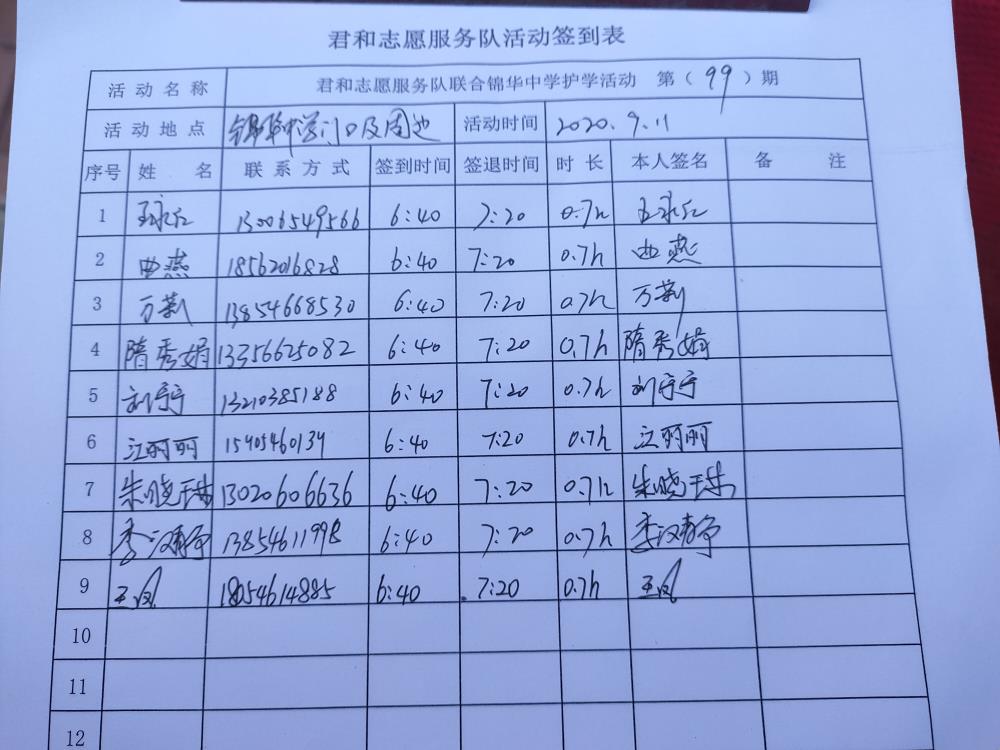 君和志愿服务队活动签到表
活动名称 君和志愿服务队联合锦华中学护学活动 第（99）期
活动地点 锦华中学门口及周边 活动时间 2020.9.11
序号 姓名 联系方式 签到时间 签退时间 时长 本人签名 备注
1 13006549566 6:40 7:20 0.7h
2 曲燕 18562016828 6:40 7:20 0.7h 曲燕
3 万莉 13854668530 6:40 7:20 0.7h 万莉
4 隋秀娟 13356625082 6:40 7:20 0.7h 隋秀娟
5 刘宁宁 13210385188 6:40 7:20 0.7h 刘宁宁
6 江丽丽 15405460134 6:40 7:20 0.7h 江丽丽
7 朱晓琳 13020606636 6:40 7:20 0.7h 朱晓琳
8 李汉静 13854611998 6:40 7:20 0.7h 李汉静
9 王凤 18054614885 6:40 7:20 0.7h 王凤
10
11
12